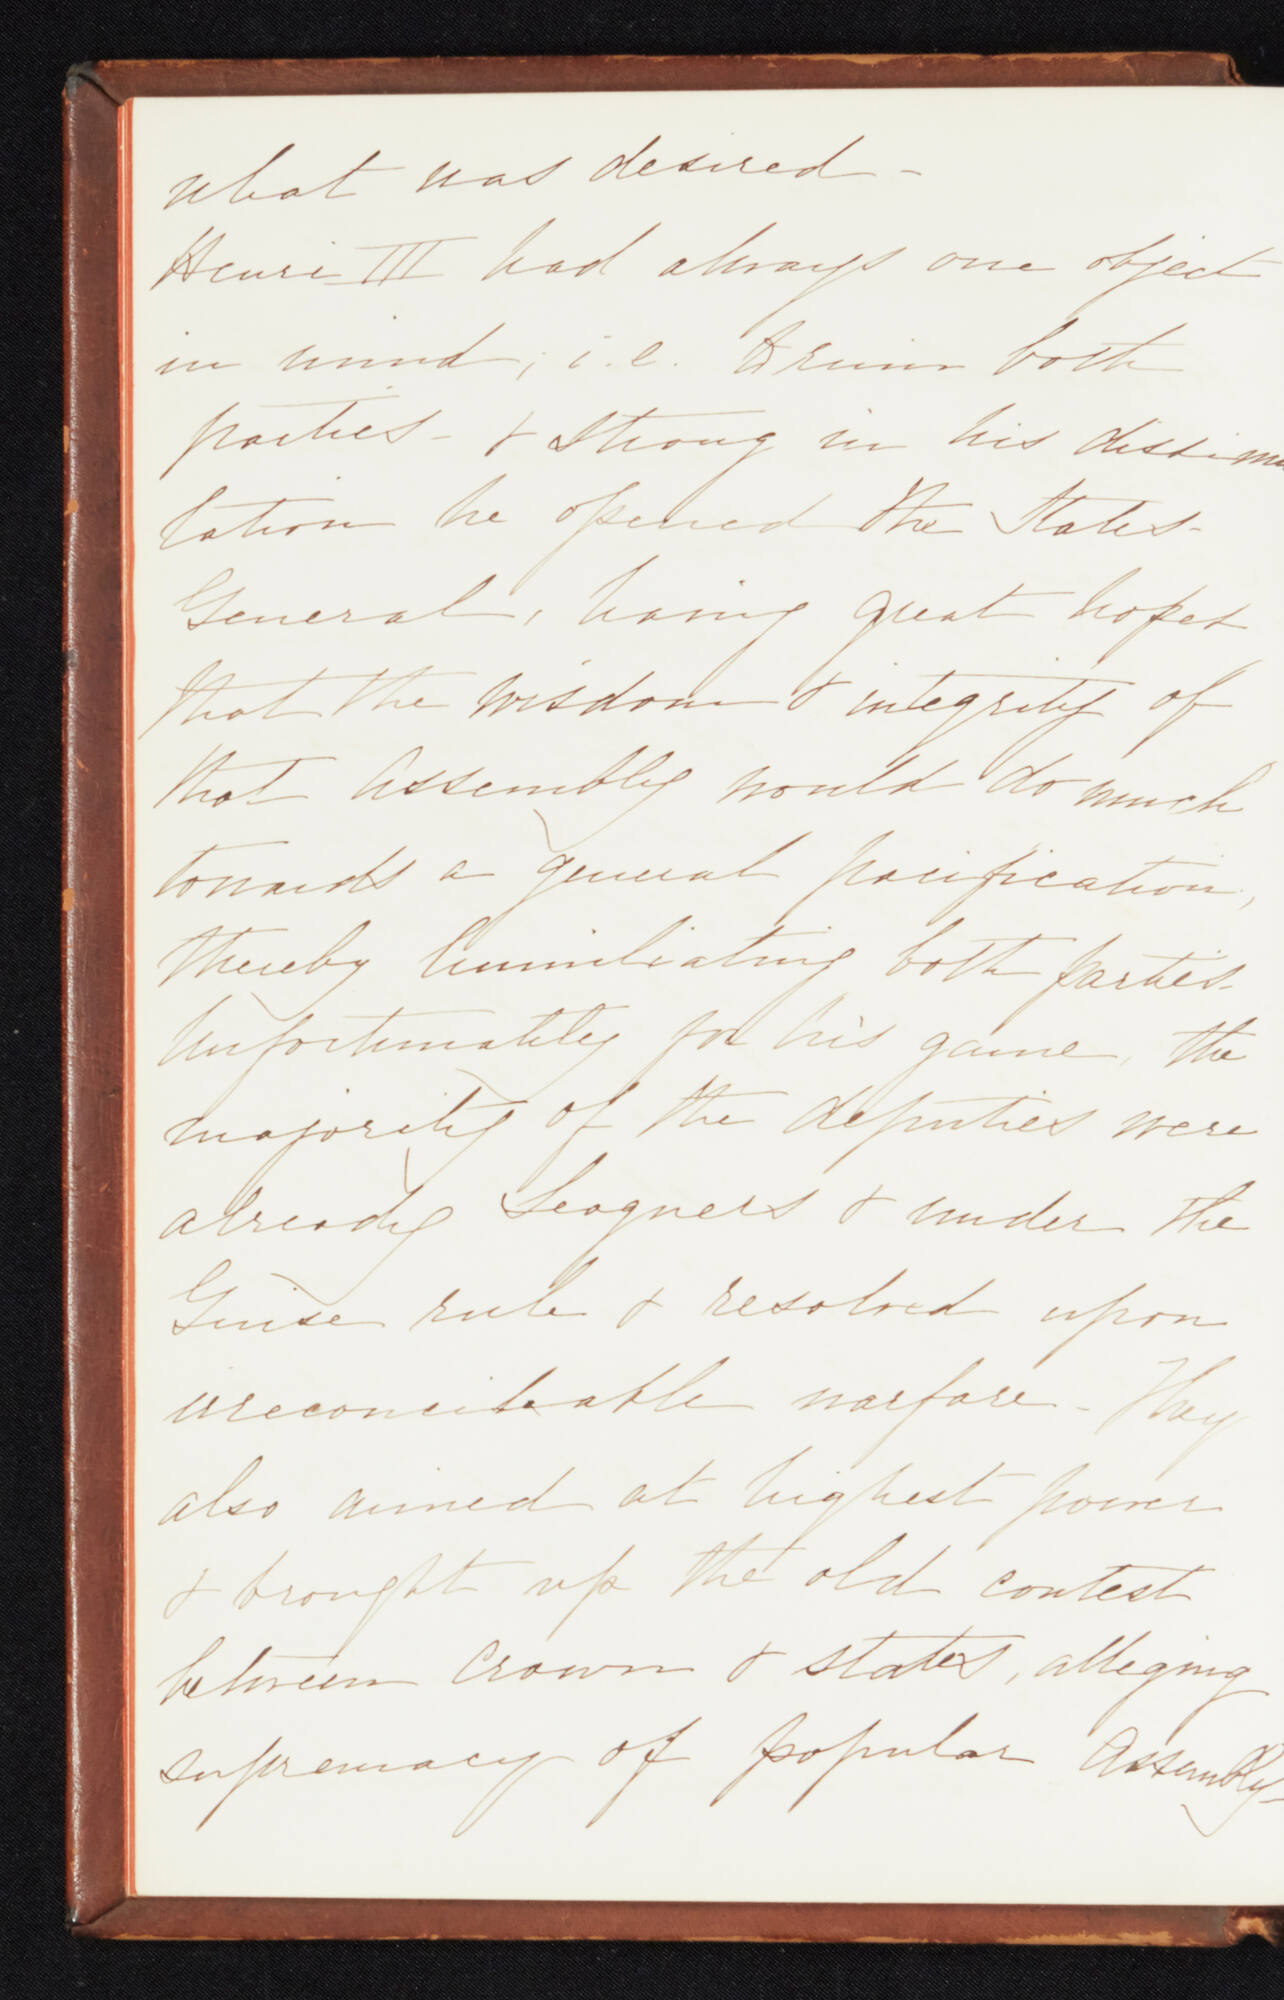 what was desired -
Henri III had always one object
in mind, i.e. to ruin both
parties - & strong in his dissimu
lation he opened the States-
General, having great hopes
that the wisdom & integrity of
that Assembly would do much
towards a general pacification,
thereby humiliating both parties.
Unfortunately for his game, the
majority of the deputies were
already Leaguers & under the
Guise rule & resolved upon
irreconcileable warfare - They
also aimed at highest power
& brought up the old contest
between Crown & states, alleging
supremacy of popular Assembly -